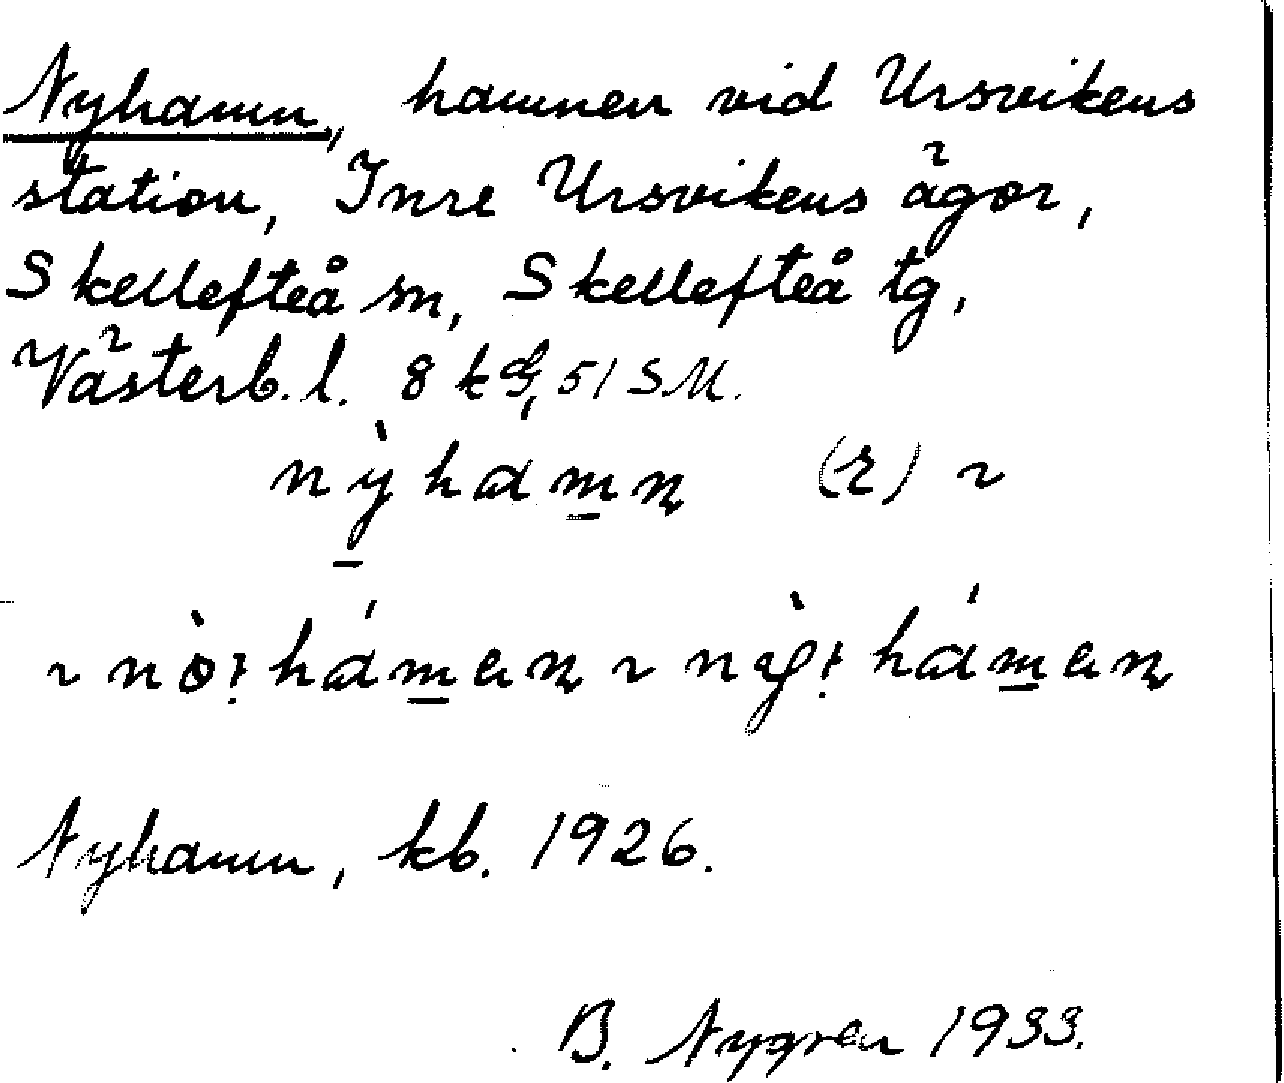 Nyhamn, hamnen vid Ursvikens
station, Inre Ursvikens ägor,
Skellefteå sn, Skellefteå tg,
Västerb. l. 8 k 51 SM.
nỳhamn (r) ~
~ nò: hámen ~ nỳ: hámen
Nyhamn, kb. 1926.
B. Nygren 1933.